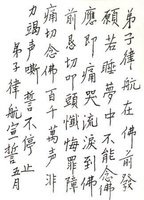 弟子律航在佛前發
願若睡夢中不能念佛
應即痛哭流淚到佛
前懇切叩頭懺悔罪障
痛切念佛百千萬聲非
力竭聲嘶誓不停止
弟子律航宣誓五月